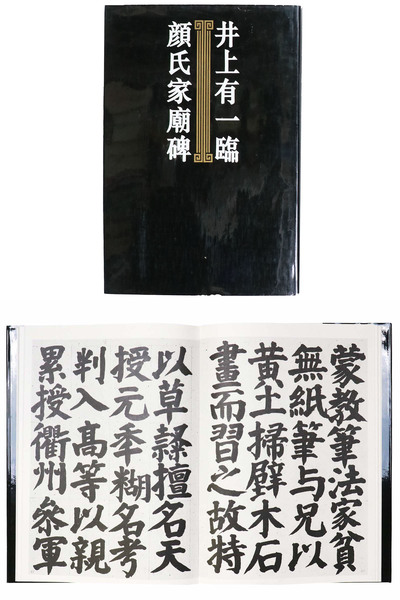 井上有一臨
顔氏家廟碑
蒙教筆法家貧
無紙筆与兄以
黄土掃壁木石
畫而習之故特
以草隸擅名天
授元年糊名考
判入高等以親
累授衢州叅軍